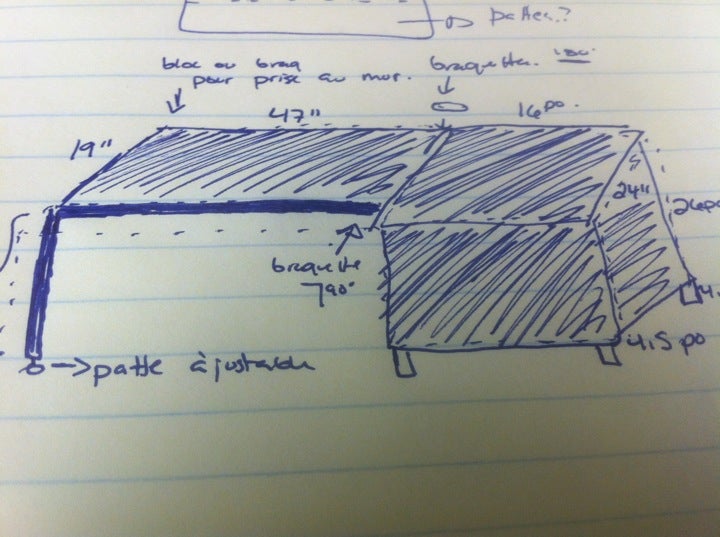 pattes?
bloc ou braq
pour prise au mur.
braquettes.
47"
16 po.
19"
24"
braquette
90°
patte àjustable
4.5 po